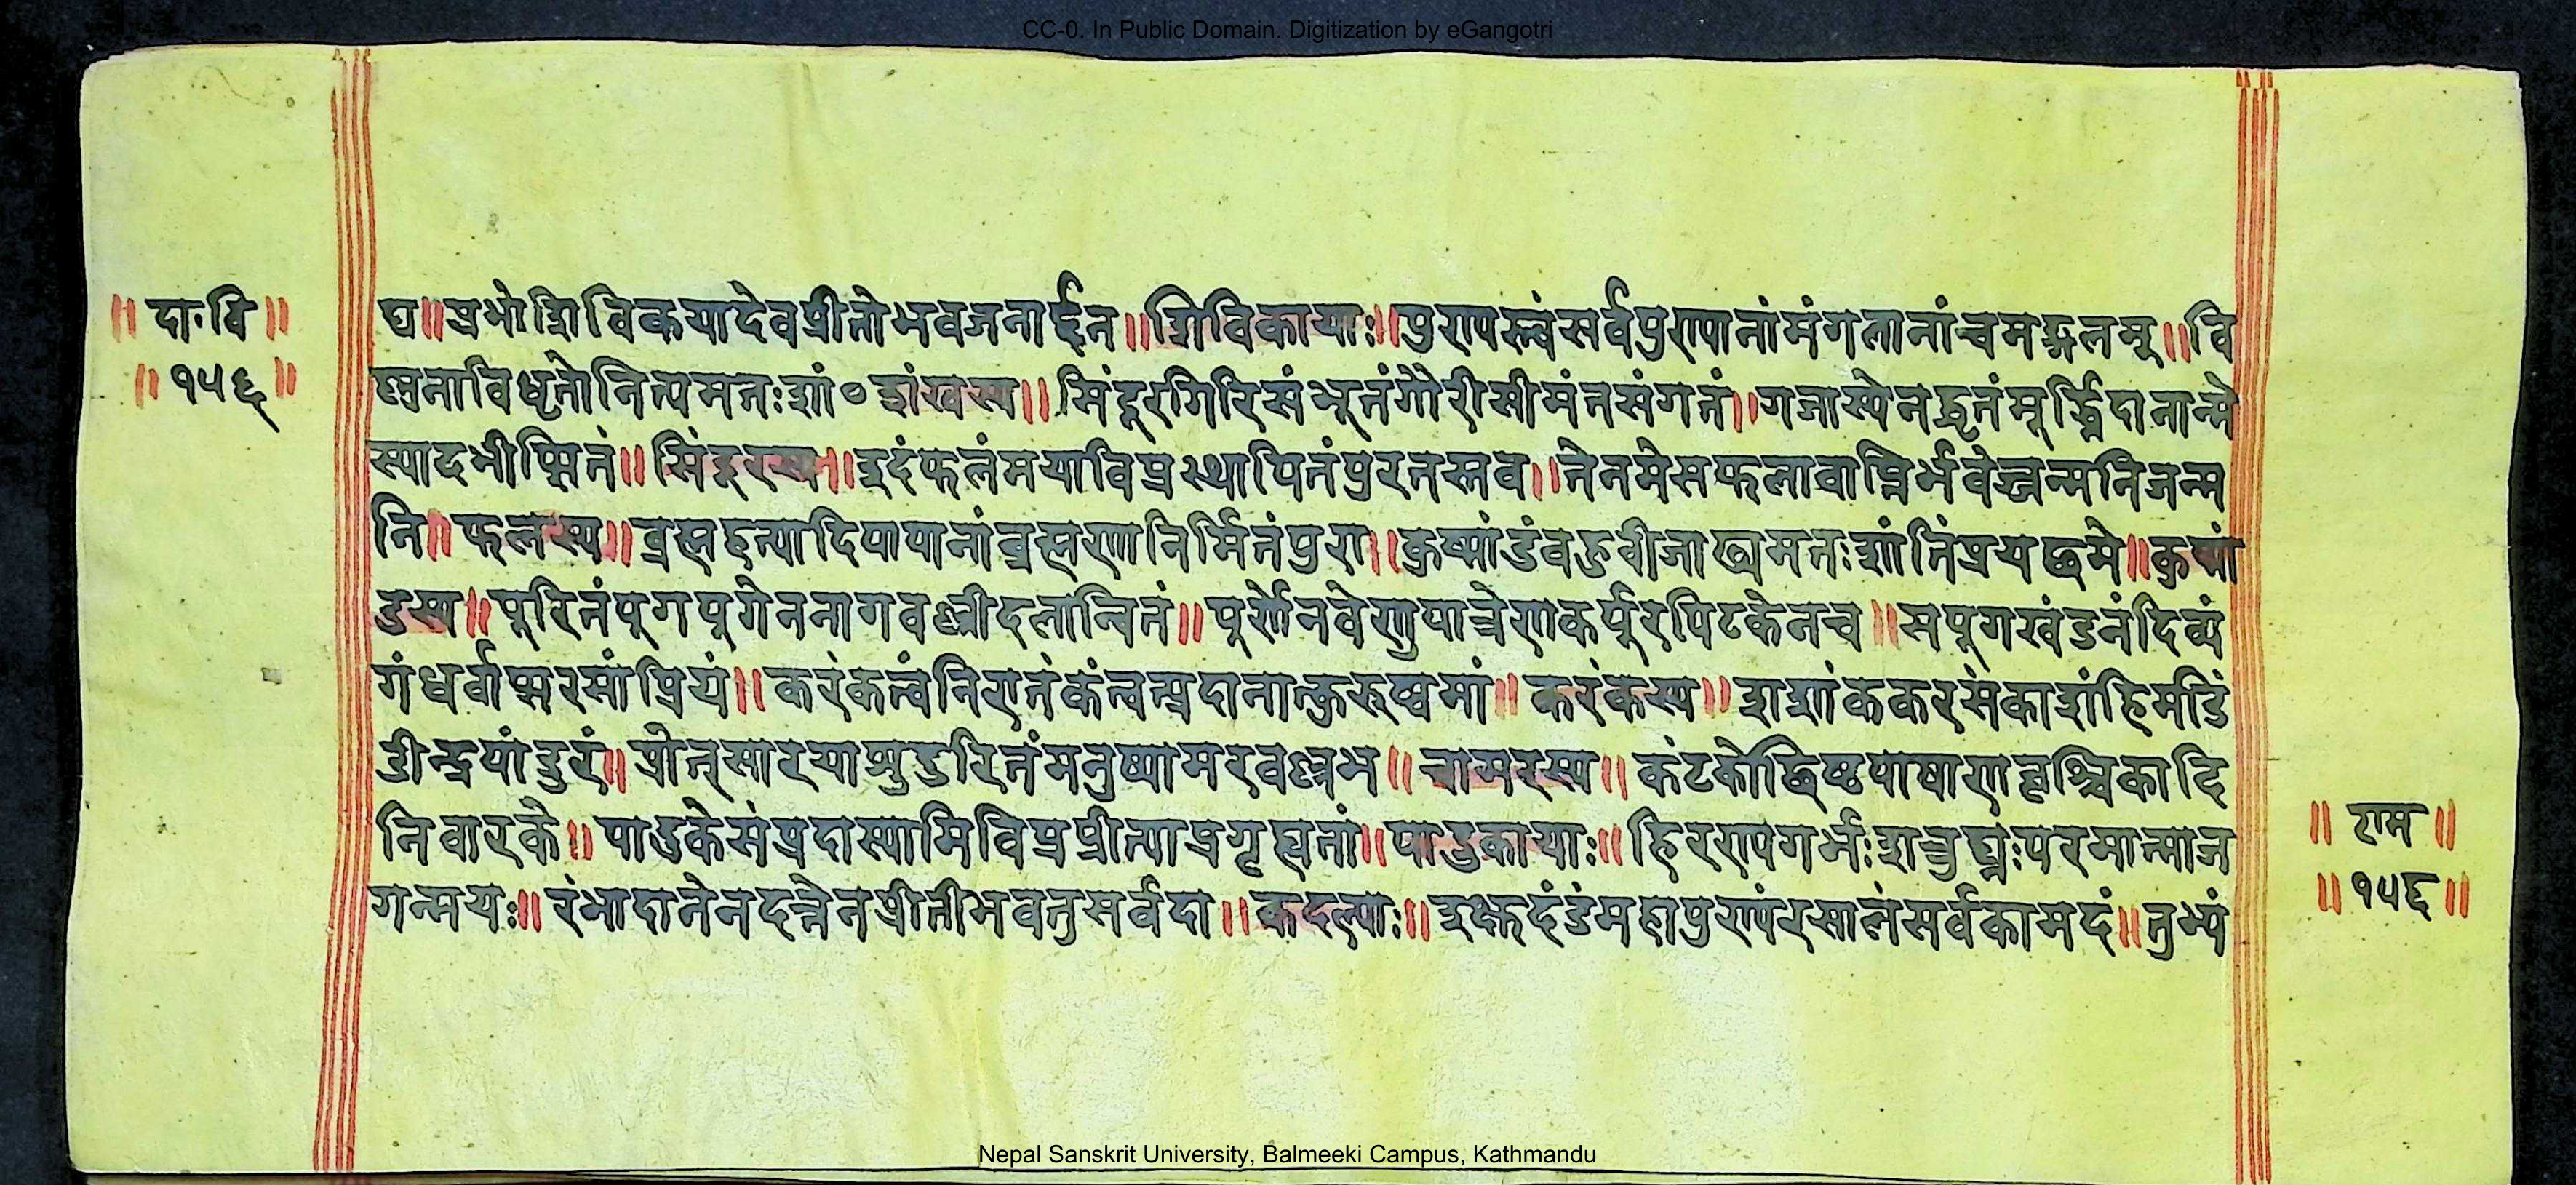 CC-0. In Public Domain. Digitization by eGangotri
॥ दा॰वि ॥
॥ १५६ ॥
द्य ॥ प्रभो शिविकया देव प्रीतो भव जनार्द्दन ॥ शिविकायाः ॥ पुण्यस्त्वं सर्वपुण्यानां मंगलानां च मङ्गलम् ॥ वि
ष्णुना विधृतो नित्यमतः शां॰ शंखस्य ॥ सिंदूरगिरिसंभूतं गौरीसीमंतसंगतं ॥ गजास्येन धृतं मूर्द्ध्नि दानान्मे
स्यादभीप्सितं ॥ सिंदूरस्य ॥ इदं फलं मया विप्र स्थापितं पुरतस्तव ॥ तेन मे सफलावाप्तिर्भवेज्जन्मनि जन्म
नि ॥ फलस्य ॥ ब्रह्महत्यादिपापानां ब्रह्मणा निर्मितं पुरा ॥ कुष्मांडं बहुबीजाढ्यमतः शांतिं प्रयछ मे ॥ कुष्मां
डस्य ॥ पूरितं पूगपूगेन नागवल्लीदलान्वितं ॥ पूर्णेन वेणुपात्रेण कर्पूरपिटकेन च ॥ सपूगखंडनं दिव्यं
गंधर्वाप्सरसां प्रियं ॥ करंकत्वं निरातंकं त्वत्प्रदानात्कुरुष्व मां ॥ करंकस्य ॥ शशांककरसंकाशं हिमडिं
डीन्द्रपांडुरं ॥ प्रोत्सारयाशु दुरितं मनुष्यामरवल्लभ ॥ चामरस्य ॥ कंटकोछिष्टपाषाणवृश्चिकादि
निवारके ॥ पादुके संप्रदास्यामि विप्र प्रीत्या प्रगृह्यतां ॥ पादुकायाः ॥ हिरण्यगर्भः शत्रुघ्नः परमात्मा ज
गन्मयः ॥ रंभादानेन दत्तेन प्रीतो भवतु सर्वदा ॥ कदल्याः ॥ इक्षुदंडं महापुण्यं रसालं सर्वकामदं ॥ तुभ्यं
॥ राम ॥
॥ १५६ ॥
Nepal Sanskrit University, Balmeeki Campus, Kathmandu